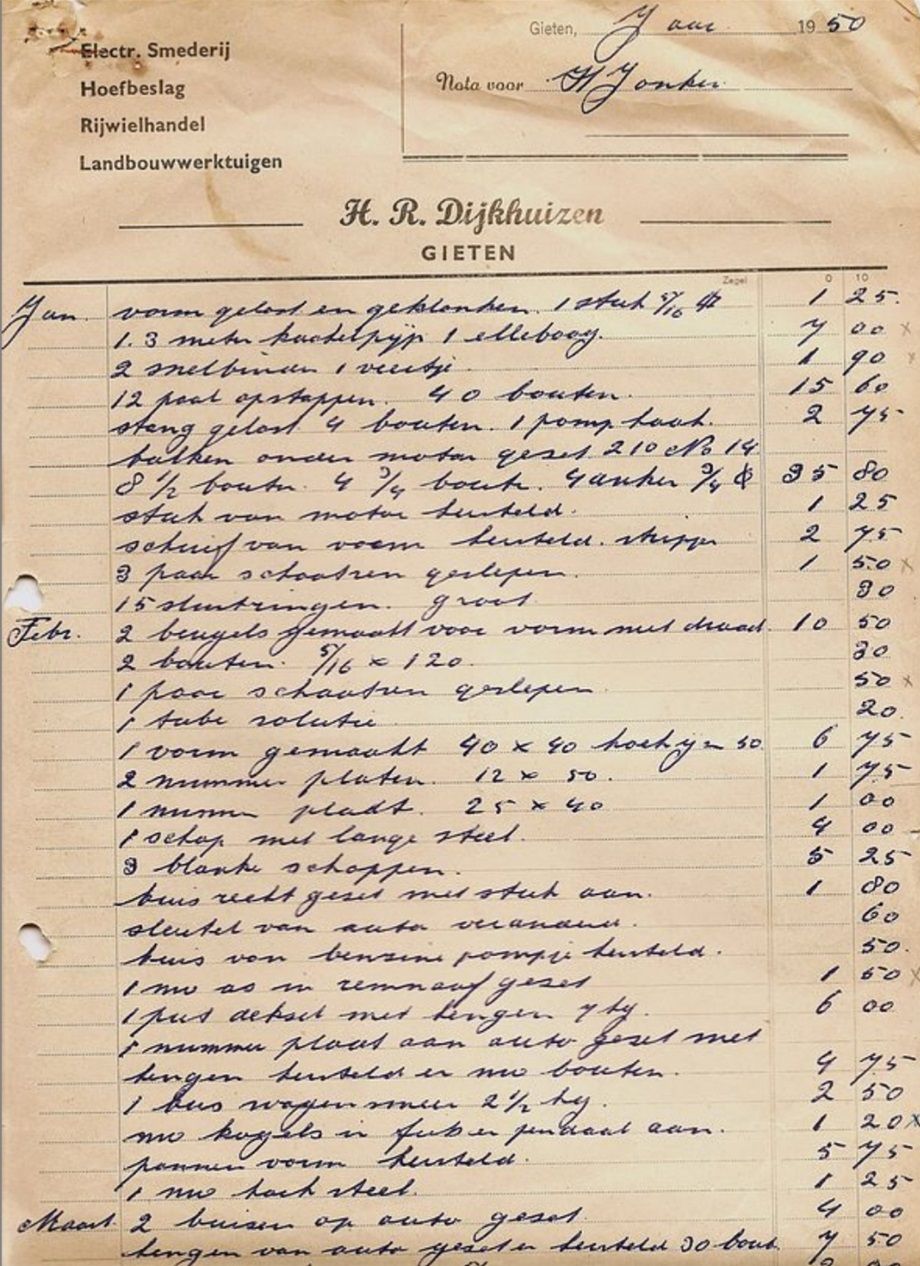 Electr. Smederij
Hoefbeslag
Rijwielhandel
Landbouwwerktuigen
Gieten, Jaar 1950
Nota voor H Jonker
H. R. Dijkhuizen
GIETEN
Zegel 0 10
Jan. vorm gelast en geklonken. 1 stuk 5/16 1 25.
1.3 meter kachelpijp 1 elleboog. 7 00 x
2 snelbinder 1 veertje 1 90 x
12 paal opstappen. 40 bouten. 15 60
stang gelast 4 bouten. 1 pomp haak. 2 75
balken onder motor geset 210 No 14
8 1/2 boutn. 4 3/4 boutn. 4 anker 3/4 35 80
stuk van motor hersteld. 1 25
schuif van vorm hersteld. 2 75
3 paar schaatsen geslepen. 1 50 x
15 sluitringen. groot 30
Febr. 2 beugels gemaakt voor vorm met draad. 10 50
2 bouten. 5/16 x 120. 30
1 paar schaatsen geslepen. 50 x
1 tube solutie 20.
1 vorm gemaakt 40 x 40 50 6 75
2 nummer platen. 12 x 50. 1 75
1 plaat. 25 x 40 1 00
1 schop met lange steel. 4 00
3 blanke schoppen. 5 25
buis recht geset met stuk aan. 1 80
sleutel van auto veranderd. 60
buis van benzine pompje hersteld. 50.
1 nw as in remnaaf geset 1 50 x
1 put deksel met hengen 7 kg. 6 00
1 nummer plaat aan auto geset met
hengen hersteld en nw bouten. 4 75
1 bus wagensmeer 2 1/2 kg. 2 50
nw kogels in pendaal aan. 1 20 x
pannen vorm hersteld. 5 75
1 nw hark steel. 1 25
Maart. 2 buisen op auto geset. 4 00
hengen van auto geset en hersteld 30 bout. 7 50